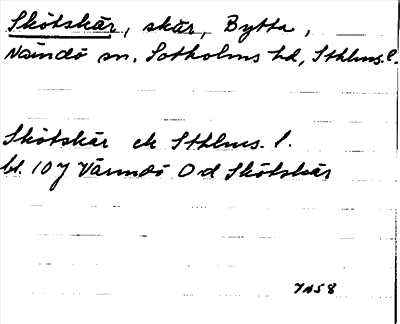 Skötskär, skär, Bytta,
Nämdö sn. Sotholms hd, Sthlms. l.
Skötskär ek Sthlms. l.
bl. 107 Värmdö Od Skötskär
7/1 58